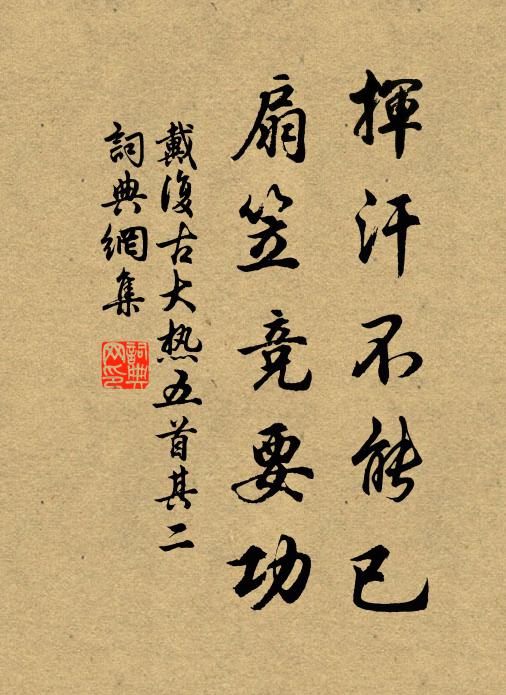 揮汗不能已
扇笠竞要功
戴復古大热五首其二
詞典網集
詞典網印